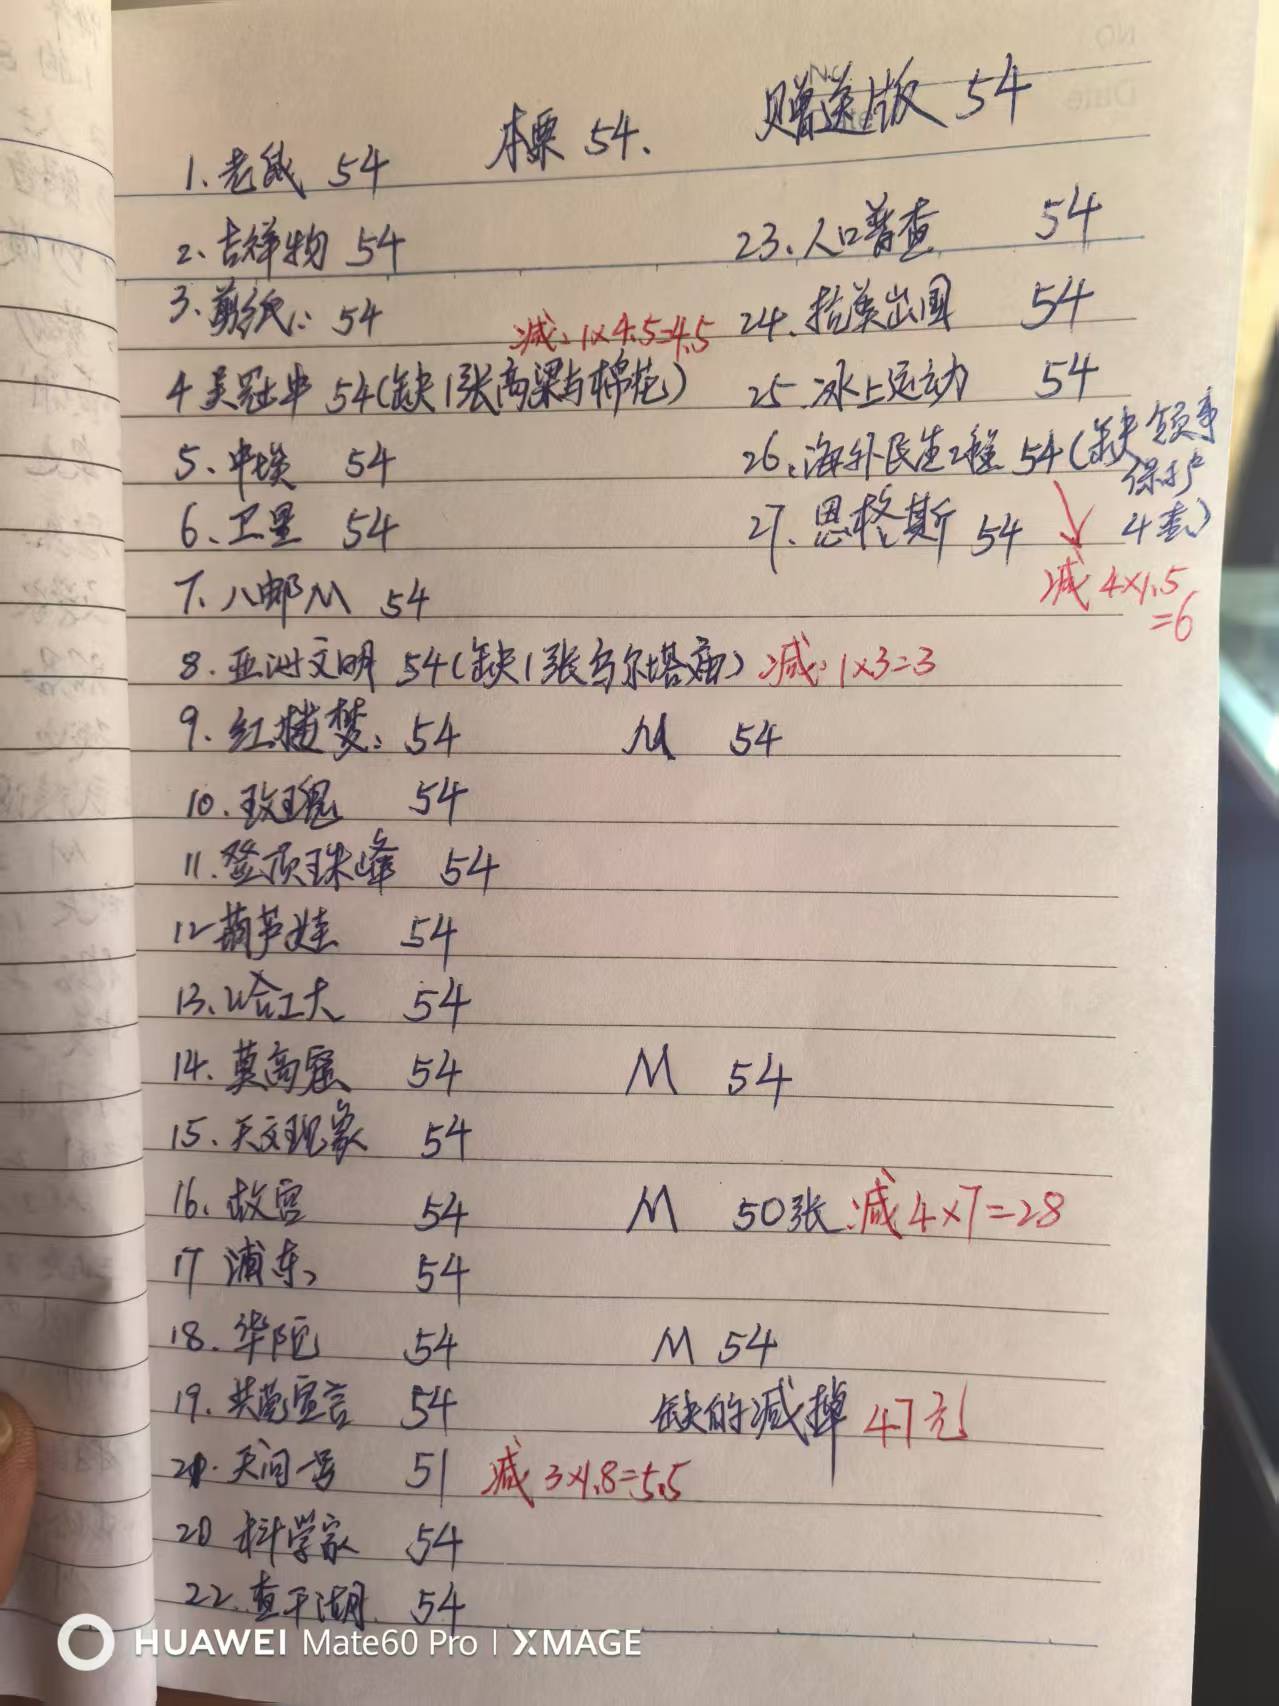 本票 54、
赠送版 54
1、老鼠 54
2、吉祥物 54
3、剪纸: 54
减: 1×4.5=4.5
4 吴冠中 54(缺1张高粱与棉花)
5、中埃 54
6、卫星 54
7、八邮M 54
8、亚洲文明 54(缺1张乌尔塔庙) 减: 1×3=3
9、红楼梦: 54 M 54
10、玫瑰 54
11、登顶珠峰 54
12 葫芦娃 54
13、哈工大 54
14、莫高窟 54 M 54
15、天文现象 54
16、故宫 54 M 50张 减4×7=28
17 浦东, 54
18、华陀 54 M 54
19、共党宣言 54 缺的减掉 47元
天问一号 51 减 3×1.8=5.5
科学家 54
22、查干湖 54
23、人口普查 54
24、抗美出国 54
25 冰上运动 54
26、海外民生工程 54(缺领事
保护
4套)
27、恩格斯 54
减 4×1.5
=6
NO
Date
HUAWEI Mate60 Pro | XMAGE